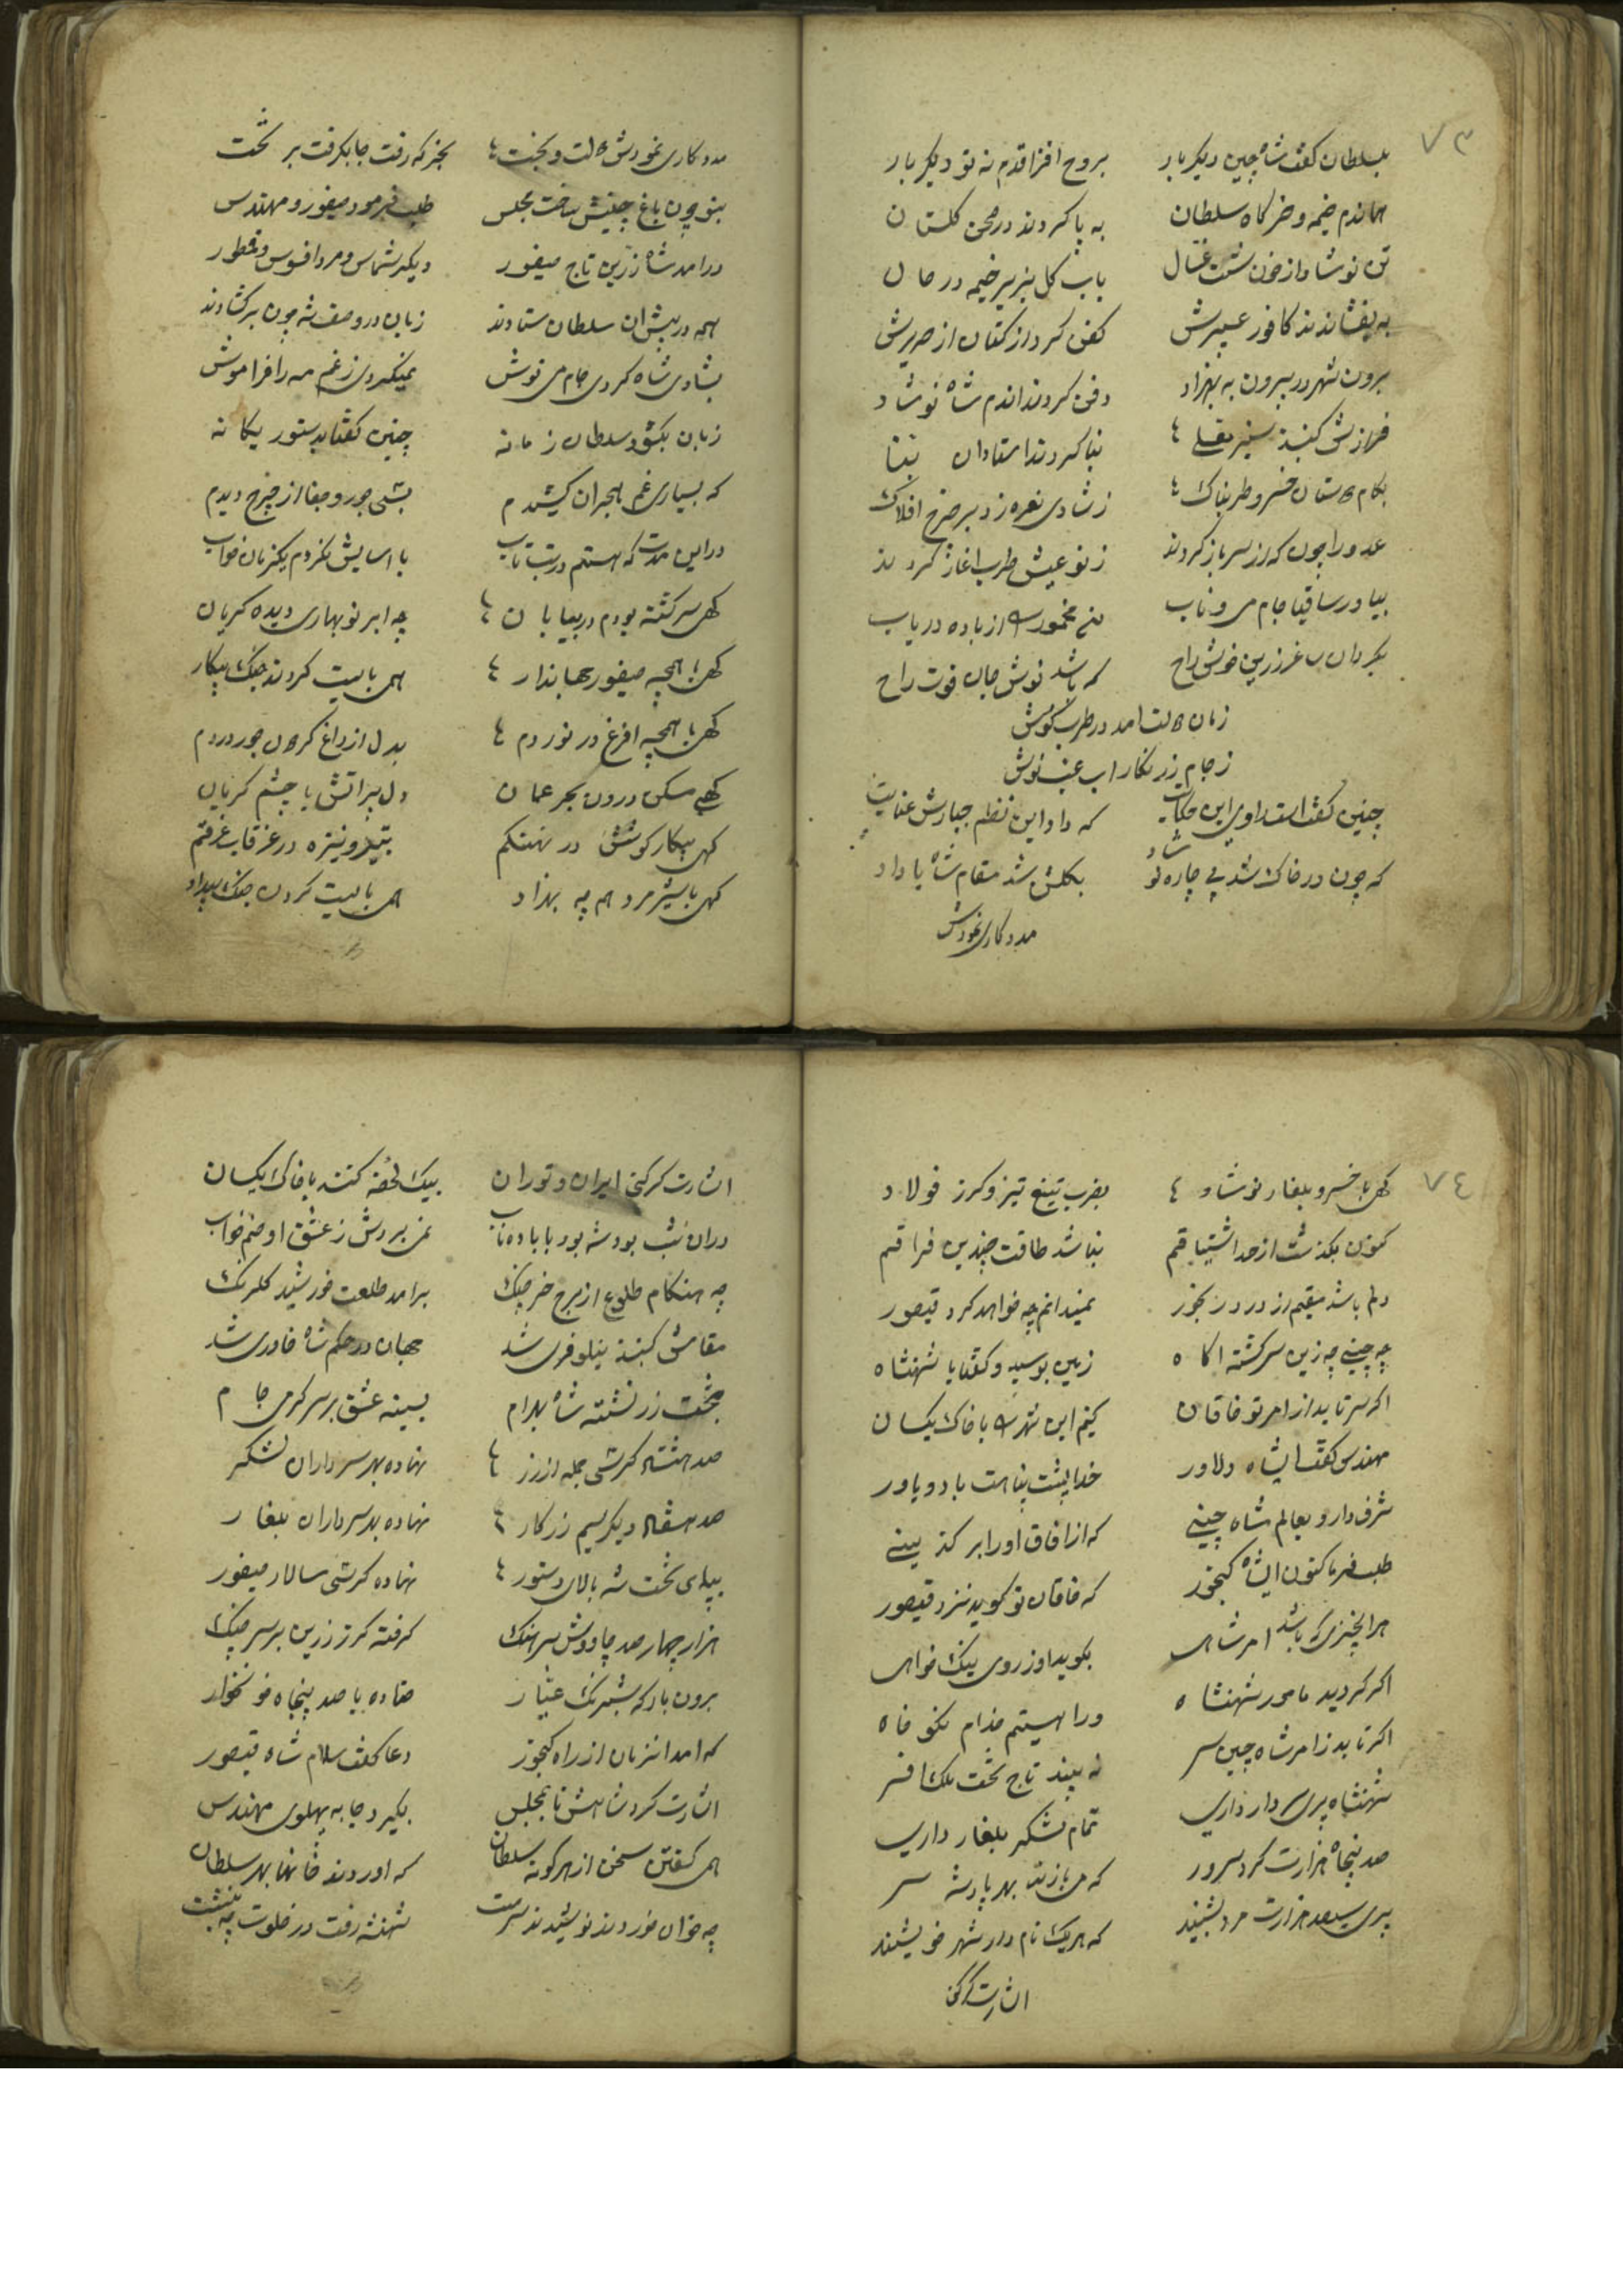 ٧٣
بسلطان گفت شاه چین دیکر بار بروح افزا قدم نه تو دیکر بار
هماندم خیمه و خرکاه سلطان به پا کردند در صحن کلستان
تن نوشاد از خون شست غسال باب کل بزیر خیمه در حال
به یفشاندند کافور عبیرش کفن کرد از کتان از حریرش
برون شهر در بیرون به بهزاد دفن کردند اندم شاه نوشاد
فرازش کنبذ بنا کردند استادان
بکام دوستان خسرو طربناک زشادی نعره زد بر چرخ افلاک
عدو را چون که از سر باز کردند ز نو عیش طرب اغاز کردند
بیاور ساقیا جام می و ناب از باده دریاب
بکردان ساغر زرین خوش راح که باشد نوش جان قوت راح
زمان دولت امد در طرب کوش
ز جام زرنکار اب عنب نوش
چنین کفت است راوی این حکایت که داد این نظم جبارش عنایت
که چون در خاک شد بی چاره نوشاد بکلشن شد مقام شاه با داد
مددکاری نمودش
مددکاری نمودش دولت و بخت بجز که رفت جا بکرفت بر تخت
بنو چون باغ جنت ساخت مجلس طلب فرمود صیفور و مهندس
درامد شاه زرین تاج صیفور دیکر شماس و مرد افسوس و قطور
همه در پیش ان سلطان ستادند زبان در وصف شه چون برکشادند
بشادی شاه کردی جام می نوش نمیکردی ز غم مه را فراموش
زبان بکشود سلطان زمانه چنین کفتا بدستور یکانه
که بسیاری غم هجران کشیدم بسی جور و جفا از چرخ دیدم
در این مدت که هستم در تب تاب با اسایش نکردم یکزمان خواب
کهی سرکشته بودم در بیابان چه ابر نوبهاری دیده کریان
کهی با همچه صیفور جهاندار همی بایست کردند جنک پیکار
کهی با همچه افرغ در نوردم بدل از داغ کردن جور دردم
کهی مسکن درون بحر عمان دل پر اتش با چشم کریان
کهی پیکار کوشش در نهنکم بتیر و نیزه در غرقاب غرقتم
کهی با شیر مرد هم چه بهزاد همی بایست کردن جنک بیداد
٧٤
کهی با خسرو بلغار نوشاد بضرب تیغ تیز و کرز فولاد
کنون بکذشت از حد اشتیاقم نباشد طاقت چندین فراقم
دلم باشد مقیم از درد رنجور نمیدانم چه خواهد کرد قیصور
چه چینی چه زین سرکشته اکاه زمین بوسید و کفتا یا شهنشاه
اکر سر تابد از امر تو خاقان کنم این شهر را با خاک یکسان
مهندس کفت ایشاه دلاور خدا پشت پناهت باد و یاور
شرف دارد بعالم شاه چینی که از افاق او را بر کذینی
طلب فرما کنون ایشاه کنجور که خاقان تو کوید نزد قیصور
هر انچیزی که باشد امر شاهی بکوید او ز روی نیک خواهی
اکر کردید مامور شهنشاه ورا هستیم خدام نکو خاه
اکر تابد ز امر شاه چین سر نه بیند تاج تخت ملک افسر
شهنشاه پری بردار داری تمام لشکر بلغار داری
صد پنجاه هزارت کرد سرور که می بازند بهر پادشه سر
پری سیصد هزارت مرد بشنید که هریک نام دار شهر خویشند
اشارت کرکنی
اشارت کرکنی ایران و توران بیک لحضه کنند با خاک یکسان
دران شب بود شه بود با باده ناب نمی بردش ز عشق او صنم خواب
چه هنکام طلوع از برج خرچنک برامد طلعت خورشید کلرنک
مقامش کنبذ نیلوفری شد جهان در حکم شاه خاوری شد
بتخت زر نشسته شاه بهرام بسینه عشق بر سر کرمی جام
صد هشتاد کرسی جمله از زر نهاده بهر سرداران لشکر
صد دیکر سیم زرکار نهاده بهر سرداران بلغار
بپای تخت شه بالای دستور نهاده کرسی سالار صیفور
هزار چهار صد چاووش سرهنک کرفته کرز زرین بر سر چنک
برون بارکه شبرنک عیار ستاده با صد پنجاه خونخوار
که امد انزمان از راه کنجور دعا کفت سلام شاه قیصور
اشارت کرد شاهش تا بمجلس بکیرد جا به پهلوی مهندس
همی کفتن سخن از هر کونه سلطان که اوردند خانها بهر سلطان
چه خوان خوردند نوشیدند سرمست شهنشه رفت در خلوت چه بنشست